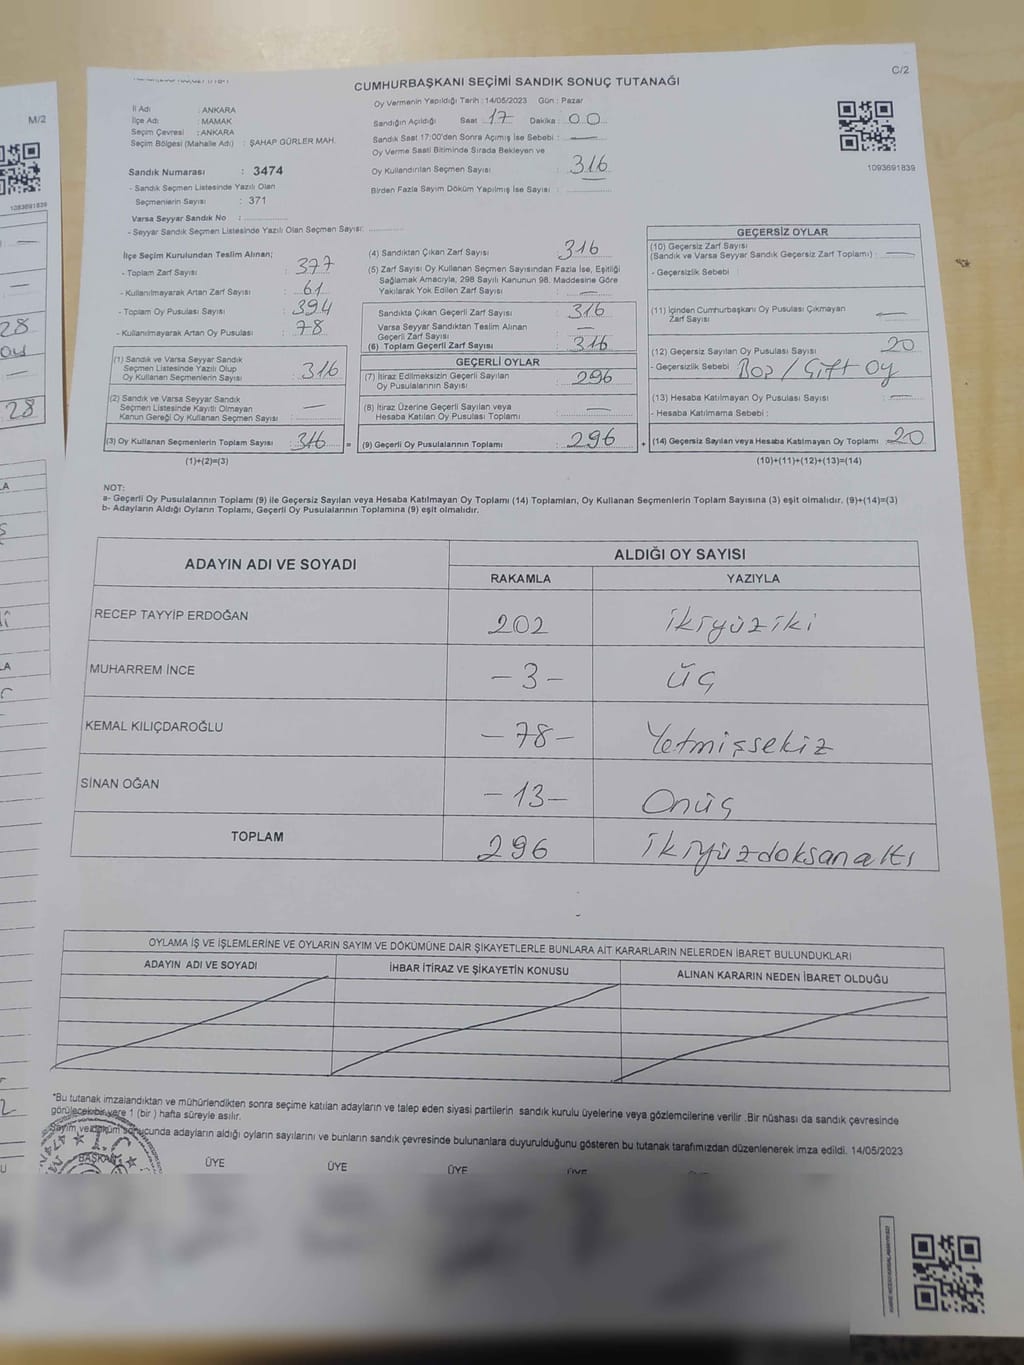 C/2
CUMHURBAŞKANI SEÇİMİ SANDIK SONUÇ TUTANAĞI
İl Adı : ANKARA
İlçe Adı : MAMAK
Seçim Çevresi : ANKARA
Seçim Bölgesi (Mahalle Adı) : ŞAHAP GÜRLER MAH.
Sandık Numarası : 3474
- Sandık Seçmen Listesinde Yazılı Olan
Seçmenlerin Sayısı : 371
Varsa Seyyar Sandık No :
- Seyyar Sandık Seçmen Listesinde Yazılı Olan Seçmen Sayısı:
Oy Vermenin Yapıldığı Tarih : 14/05/2023 Gün : Pazar
Sandığın Açıldığı Saat : 17 Dakika : 00
Sandık Saat 17:00'den Sonra Açımış İse Sebebi : —
Oy Verme Saati Bitiminde Sırada Bekleyen ve
Oy Kullandırılan Seçmen Sayısı : 316
Birden Fazla Sayım Döküm Yapılmış İse Sayısı :
1093691839
İlçe Seçim Kurulundan Teslim Alınan;
- Toplam Zarf Sayısı : 377
- Kullanılmayarak Artan Zarf Sayısı : 61
- Toplam Oy Pusulası Sayısı : 394
- Kullanılmayarak Artan Oy Pusulası : 78
(1) Sandık ve Varsa Seyyar Sandık
Seçmen Listesinde Yazılı Olup
Oy Kullanan Seçmenlerin Sayısı : 316
(2) Sandık ve Varsa Seyyar Sandık
Seçmen Listesinde Kayıtlı Olmayan
Kanun Gereği Oy Kullanan Seçmen Sayısı : —
(3) Oy Kullanan Seçmenlerin Toplam Sayısı : 316 =
(1)+(2)=(3)
(4) Sandıktan Çıkan Zarf Sayısı : 316
(5) Zarf Sayısı Oy Kullanan Seçmen Sayısından Fazla İse, Eşitliği
Sağlamak Amacıyla, 298 Sayılı Kanunun 98. Maddesine Göre
Yakılarak Yok Edilen Zarf Sayısı : —
Sandıkta Çıkan Geçerli Zarf Sayısı : 316
Varsa Seyyar Sandıktan Teslim Alınan
Geçerli Zarf Sayısı : —
(6) Toplam Geçerli Zarf Sayısı : 316
GEÇERLİ OYLAR
(7) İtiraz Edilmeksizin Geçerli Sayılan
Oy Pusulalarının Sayısı : 296
(8) İtiraz Üzerine Geçerli Sayılan veya
Hesaba Katılan Oy Pusulası Toplamı : —
(9) Geçerli Oy Pusulalarının Toplamı : 296 +
GEÇERSİZ OYLAR
(10) Geçersiz Zarf Sayısı
(Sandık ve Varsa Seyyar Sandık Geçersiz Zarf Toplamı) : —
- Geçersizlik Sebebi :
(11) İçinden Cumhurbaşkanı Oy Pusulası Çıkmayan
Zarf Sayısı : —
(12) Geçersiz Sayılan Oy Pusulası Sayısı : 20
- Geçersizlik Sebebi : Boş/Çift Oy
(13) Hesaba Katılmayan Oy Pusulası Sayısı : —
- Hesaba Katılmama Sebebi :
(14) Geçersiz Sayılan veya Hesaba Katılmayan Oy Toplamı : 20
(10)+(11)+(12)+(13)=(14)
NOT:
a- Geçerli Oy Pusulalarının Toplamı (9) ile Geçersiz Sayılan veya Hesaba Katılmayan Oy Toplamı (14) Toplamları, Oy Kullanan Seçmenlerin Toplam Sayısına (3) eşit olmalıdır. (9)+(14)=(3)
b- Adayların Aldığı Oyların Toplamı, Geçerli Oy Pusulalarının Toplamına (9) eşit olmalıdır.
ADAYIN ADI VE SOYADI
ALDIĞI OY SAYISI
RAKAMLA YAZIYLA
RECEP TAYYİP ERDOĞAN 202 ikiyüziki
MUHARREM İNCE -3- üç
KEMAL KILIÇDAROĞLU -78- Yetmişsekiz
SİNAN OĞAN -13- Onüç
TOPLAM 296 ikiyüzdoksanaltı
OYLAMA İŞ VE İŞLEMLERİNE VE OYLARIN SAYIM VE DÖKÜMÜNE DAİR ŞİKAYETLERLE BUNLARA AİT KARARLARIN NELERDEN İBARET BULUNDUKLARI
ADAYIN ADI VE SOYADI İHBAR İTİRAZ VE ŞİKAYETİN KONUSU ALINAN KARARIN NEDEN İBARET OLDUĞU
*Bu tutanak imzalandıktan ve mühürlendikten sonra seçime katılan adayların ve talep eden siyasi partilerin sandık kurulu üyelerine veya gözlemcilerine verilir .Bir nüshası da sandık çevresinde
görülecek bir yere 1 (bir ) hafta süreyle asılır.
Sayım ve döküm sonucunda adayların aldığı oyların sayılarını ve bunların sandık çevresinde bulunanlara duyurulduğunu gösteren bu tutanak tarafımızdan düzenlenerek imza edildi. 14/05/2023
BAŞKAN ÜYE ÜYE ÜYE ÜYE
M/2
1093691839
28
28